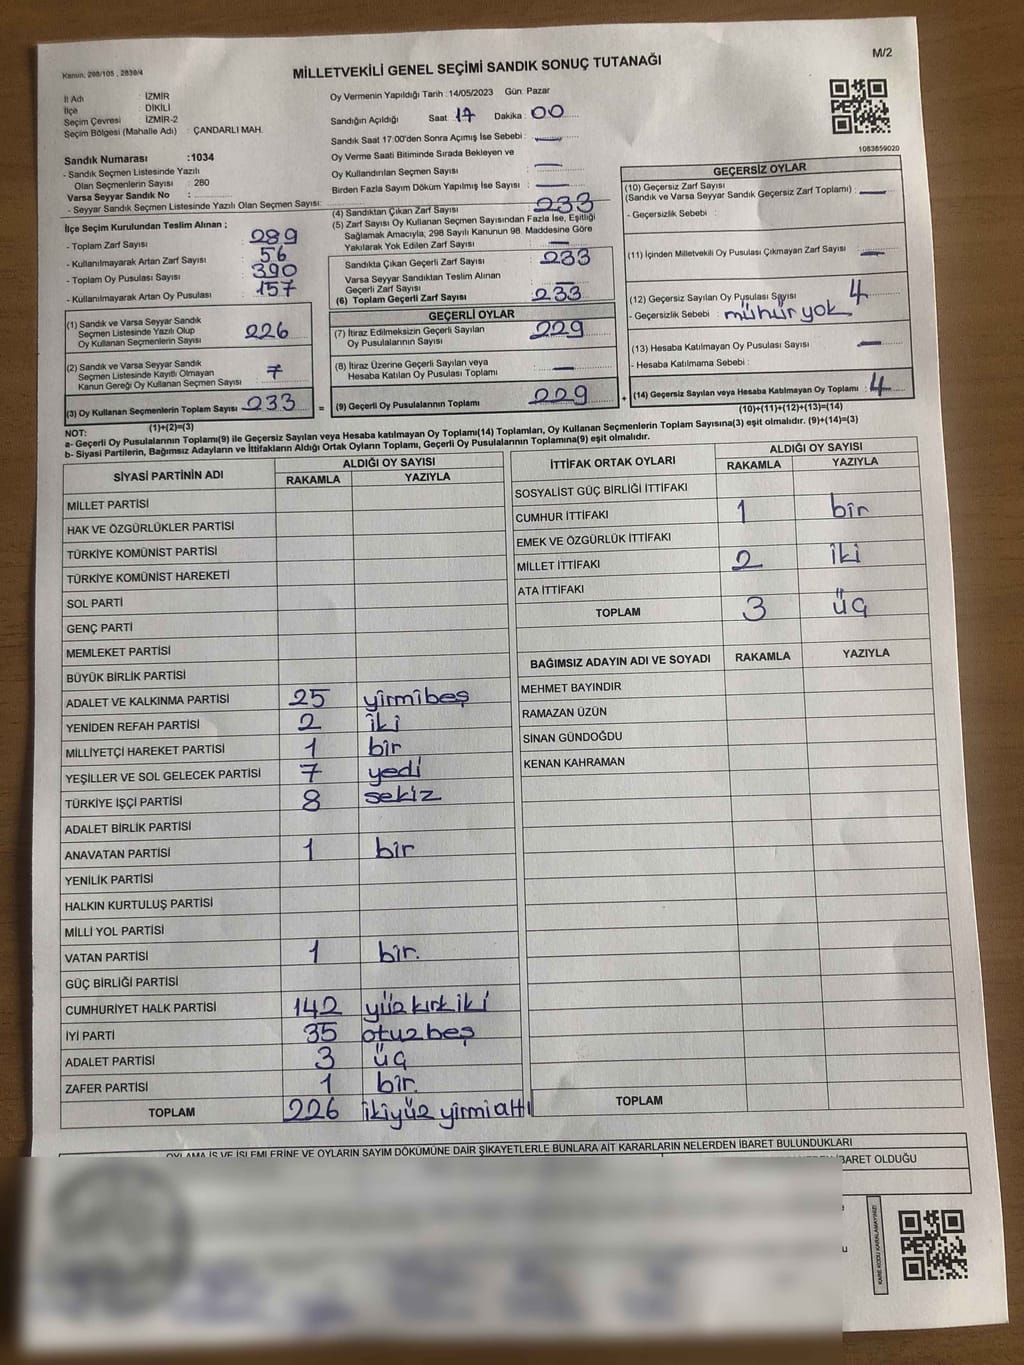 Kanun, 298/105 , 2839/4
M/2
MİLLETVEKİLİ GENEL SEÇİMİ SANDIK SONUÇ TUTANAĞI
İl Adı : İZMİR
İlçe : DİKİLİ
Seçim Çevresi : İZMİR-2
Seçim Bölgesi (Mahalle Adı) : ÇANDARLI MAH.
Sandık Numarası :1034
- Sandık Seçmen Listesinde Yazılı
Olan Seçmenlerin Sayısı : 280
Varsa Seyyar Sandık No :
- Seyyar Sandık Seçmen Listesinde Yazılı Olan Seçmen Sayısı:
İlçe Seçim Kurulundan Teslim Alınan ;
- Toplam Zarf Sayısı 289
- Kullanılmayarak Artan Zarf Sayısı 56
- Toplam Oy Pusulası Sayısı 390
- Kullanılmayarak Artan Oy Pusulası 157
(1) Sandık ve Varsa Seyyar Sandık
Seçmen Listesinde Yazılı Olup
Oy Kullanan Seçmenlerin Sayısı 226
(2) Sandık ve Varsa Seyyar Sandık
Seçmen Listesinde Kayıtlı Olmayan
Kanun Gereği Oy Kullanan Seçmen Sayısı 7
(3) Oy Kullanan Seçmenlerin Toplam Sayısı 233
(1)+(2)=(3)
Oy Vermenin Yapıldığı Tarih : 14/05/2023 Gün: Pazar
Sandığın Açıldığı Saat 17 Dakika : 00
Sandık Saat 17:00'den Sonra Açımış İse Sebebi : —
Oy Verme Saati Bitiminde Sırada Bekleyen ve
Oy Kullandırılan Seçmen Sayısı : —
Birden Fazla Sayım Döküm Yapılmış İse Sayısı : —
(4) Sandıktan Çıkan Zarf Sayısı 233
(5) Zarf Sayısı Oy Kullanan Seçmen Sayısından Fazla İse, Eşitliği
Sağlamak Amacıyla, 298 Sayılı Kanunun 98. Maddesine Göre
Yakılarak Yok Edilen Zarf Sayısı : —
Sandıkta Çıkan Geçerli Zarf Sayısı 233
Varsa Seyyar Sandıktan Teslim Alınan
Geçerli Zarf Sayısı —
(6) Toplam Geçerli Zarf Sayısı 233
GEÇERLİ OYLAR
(7) İtiraz Edilmeksizin Geçerli Sayılan
Oy Pusulalarının Sayısı 229
(8) İtiraz Üzerine Geçerli Sayılan veya
Hesaba Katılan Oy Pusulası Toplamı —
= (9) Geçerli Oy Pusulalarının Toplamı 229
1083859020
GEÇERSİZ OYLAR
(10) Geçersiz Zarf Sayısı
(Sandık ve Varsa Seyyar Sandık Geçersiz Zarf Toplamı) : —
- Geçersizlik Sebebi :
(11) İçinden Milletvekili Oy Pusulası Çıkmayan Zarf Sayısı —
(12) Geçersiz Sayılan Oy Pusulası Sayısı 4
- Geçersizlik Sebebi : mühür yok
(13) Hesaba Katılmayan Oy Pusulası Sayısı —
- Hesaba Katılmama Sebebi :
+ (14) Geçersiz Sayılan veya Hesaba Katılmayan Oy Toplamı : 4
(10)+(11)+(12)+(13)=(14)
NOT:
a- Geçerli Oy Pusulalarının Toplamı(9) ile Geçersiz Sayılan veya Hesaba katılmayan Oy Toplamı(14) Toplamları, Oy Kullanan Seçmenlerin Toplam Sayısına(3) eşit olmalıdır. (9)+(14)=(3)
b- Siyasi Partilerin, Bağımsız Adayların ve İttifakların Aldığı Ortak Oyların Toplamı, Geçerli Oy Pusulalarının Toplamına(9) eşit olmalıdır.
SİYASİ PARTİNİN ADI ALDIĞI OY SAYISI
RAKAMLA YAZIYLA
MİLLET PARTİSİ
HAK VE ÖZGÜRLÜKLER PARTİSİ
TÜRKİYE KOMÜNİST PARTİSİ
TÜRKİYE KOMÜNİST HAREKETİ
SOL PARTİ
GENÇ PARTİ
MEMLEKET PARTİSİ
BÜYÜK BİRLİK PARTİSİ
ADALET VE KALKINMA PARTİSİ 25 yirmibeş
YENİDEN REFAH PARTİSİ 2 iki
MİLLİYETÇİ HAREKET PARTİSİ 1 bir
YEŞİLLER VE SOL GELECEK PARTİSİ 7 yedi
TÜRKİYE İŞÇİ PARTİSİ 8 sekiz
ADALET BİRLİK PARTİSİ
ANAVATAN PARTİSİ 1 bir
YENİLİK PARTİSİ
HALKIN KURTULUŞ PARTİSİ
MİLLİ YOL PARTİSİ
VATAN PARTİSİ 1 bir.
GÜÇ BİRLİĞİ PARTİSİ
CUMHURİYET HALK PARTİSİ 142 yüz kırk iki
İYİ PARTİ 35 otuz beş
ADALET PARTİSİ 3 üç
ZAFER PARTİSİ 1 bir.
TOPLAM 226 ikiyüz yirmi altı
İTTİFAK ORTAK OYLARI ALDIĞI OY SAYISI
RAKAMLA YAZIYLA
SOSYALİST GÜÇ BİRLİĞİ İTTİFAKI
CUMHUR İTTİFAKI 1 bir
EMEK VE ÖZGÜRLÜK İTTİFAKI
MİLLET İTTİFAKI 2 iki
ATA İTTİFAKI
TOPLAM 3 üç
BAĞIMSIZ ADAYIN ADI VE SOYADI RAKAMLA YAZIYLA
MEHMET BAYINDIR
RAMAZAN ÜZÜN
SİNAN GÜNDOĞDU
KENAN KAHRAMAN
TOPLAM
OYLAMA İŞ VE İŞLEMLERİNE VE OYLARIN SAYIM DÖKÜMÜNE DAİR ŞİKAYETLERLE BUNLARA AİT KARARLARIN NELERDEN İBARET BULUNDUKLARI
İBARET OLDUĞU
KARE KODU KARALAMAYINIZ!